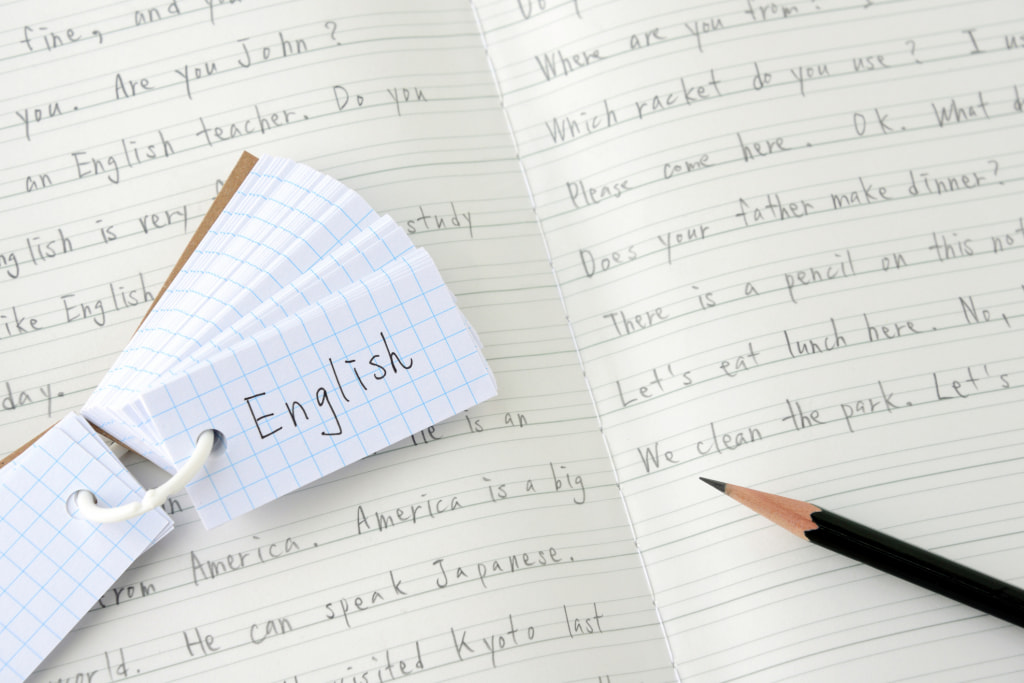 fine, and
you. Are you John?
an English teacher. Do you
English is very
study
like English
day.
He is an
from America. America is a big
world. He can speak Japanese.
visited Kyoto last
English
Where are you from?
Which racket do you use? I
Please come here. OK. What
Does your father make dinner?
There is a pencil on this
Let's eat lunch here. No,
We clean the park. Let's